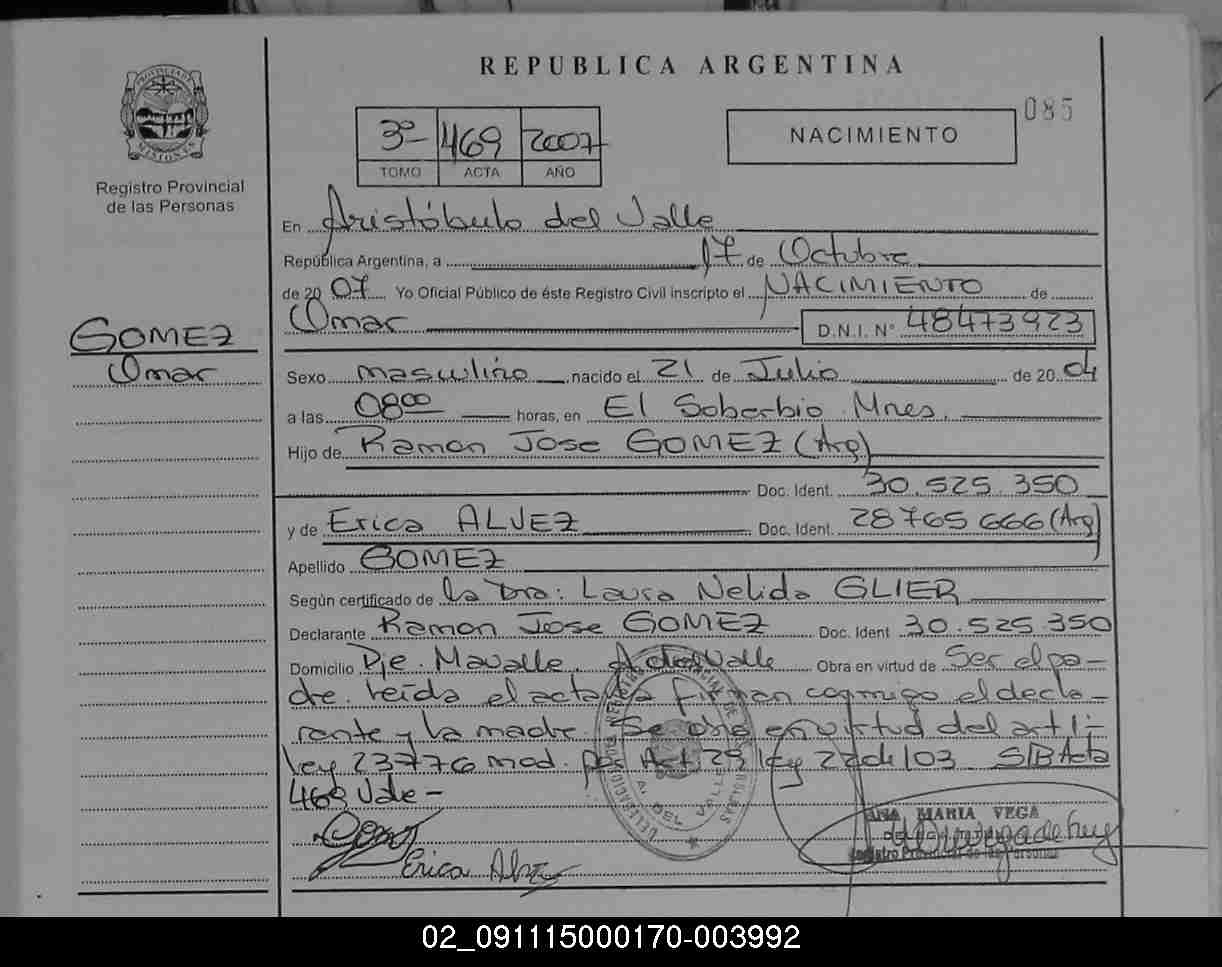 REPUBLICA ARGENTINA
085
PROVINCIA DE MISIONES
Registro Provincial
de las Personas
3º 469 2007
TOMO ACTA AÑO
NACIMIENTO
En Aristóbulo del Valle
República Argentina, a 17 de Octubre
de 2007 Yo Oficial Público de éste Registro Civil inscripto el NACIMIENTO de
Omar D.N.I. N° 48473923
GOMEZ
Omar
Sexo masculino nacido el 21 de Julio de 2004
a las 08oo horas, en El Soberbio Mnes.
Hijo de Ramon Jose GOMEZ (Arg)
Doc. Ident. 30.525.350
y de Erica ALVEZ Doc. Ident. 28765666 (Arg)
Apellido GOMEZ
Según certificado de la Dra: Laura Nelida GLIER
Declarante Ramon Jose GOMEZ Doc. Ident 30.525.350
Domicilio Pje. Mavalle. A del Valle Obra en virtud de Ser el pa-
dre. leída el acta la firman conmigo el decla-
rante y la madre. Se obra en virtud del art 1:
ley 23776 mod. por Art. 29 ley 22 de 103 S/B Acta
469 Vale -
ANA MARIA VEGA
Registro Provincial de las Personas
Erica Alvez
02_091115000170-003992